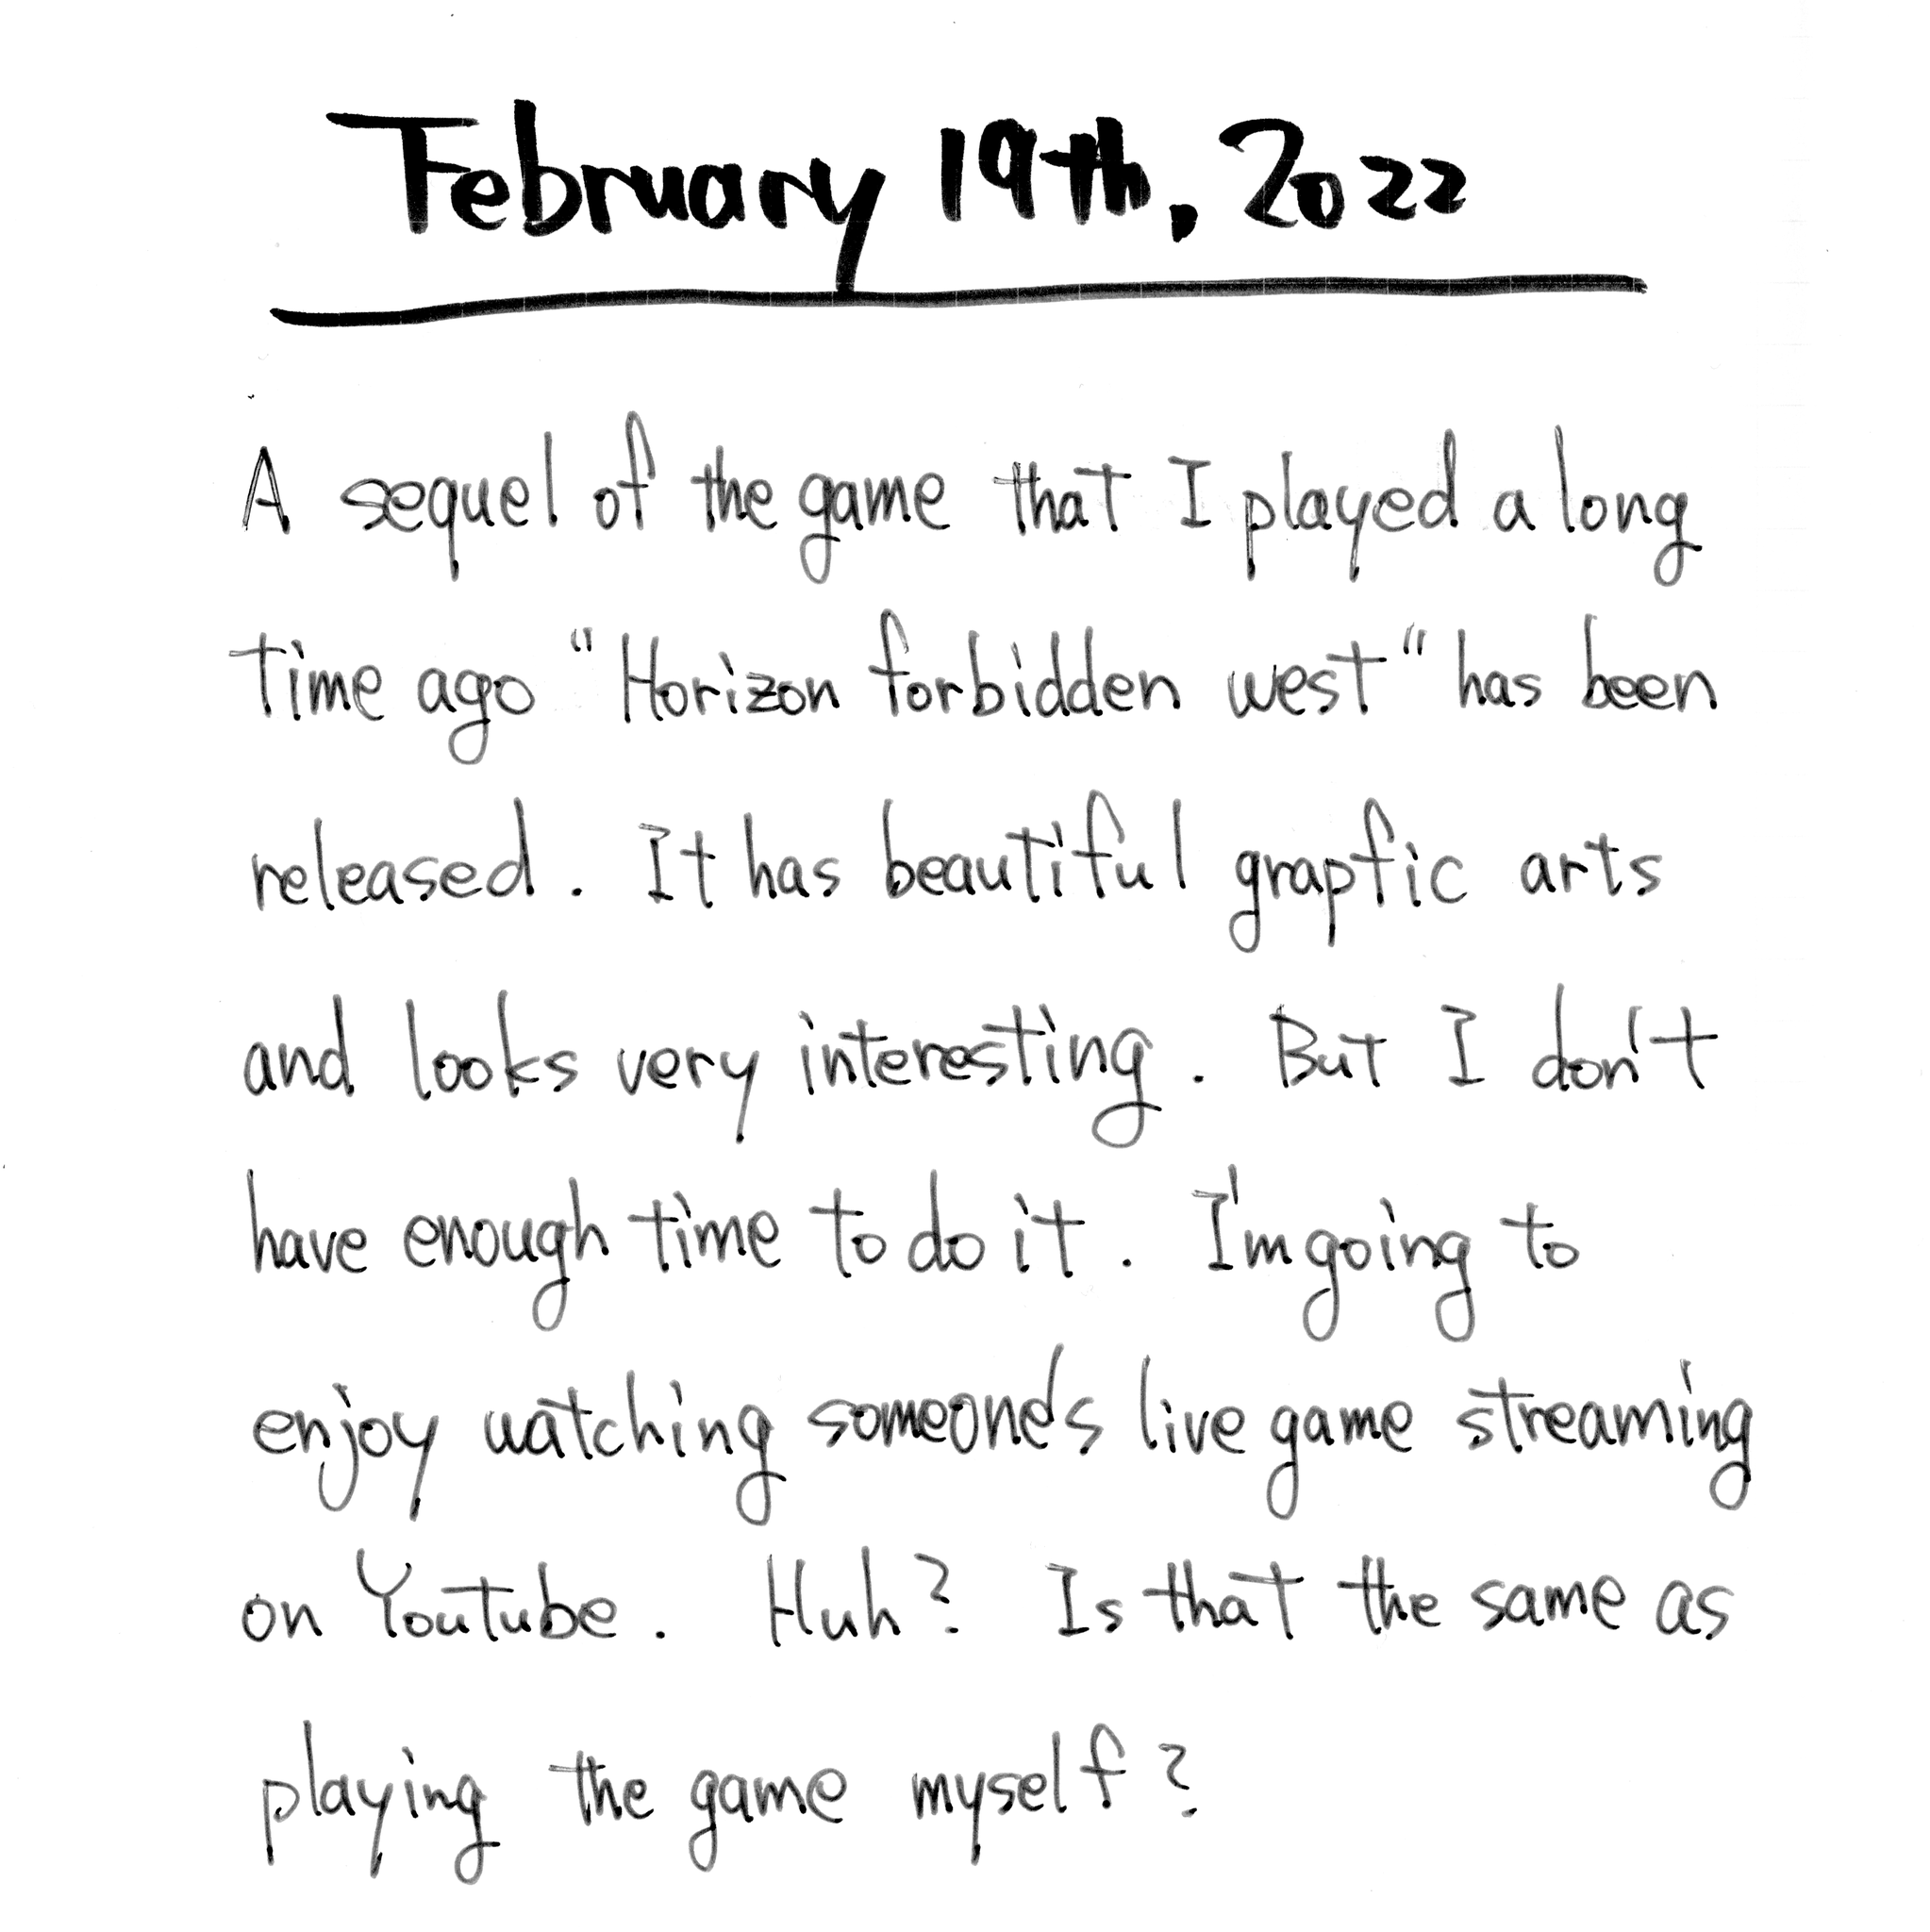 February 19th, 2022
A sequel of the game that I played a long
time ago "Horizon forbidden west" has been
released. It has beautiful grapfic arts
and looks very interesting. But I don't
have enough time to do it. I'm going to
enjoy watching someone's live game streaming
on Youtube. Huh? Is that the same as
playing the game myself?